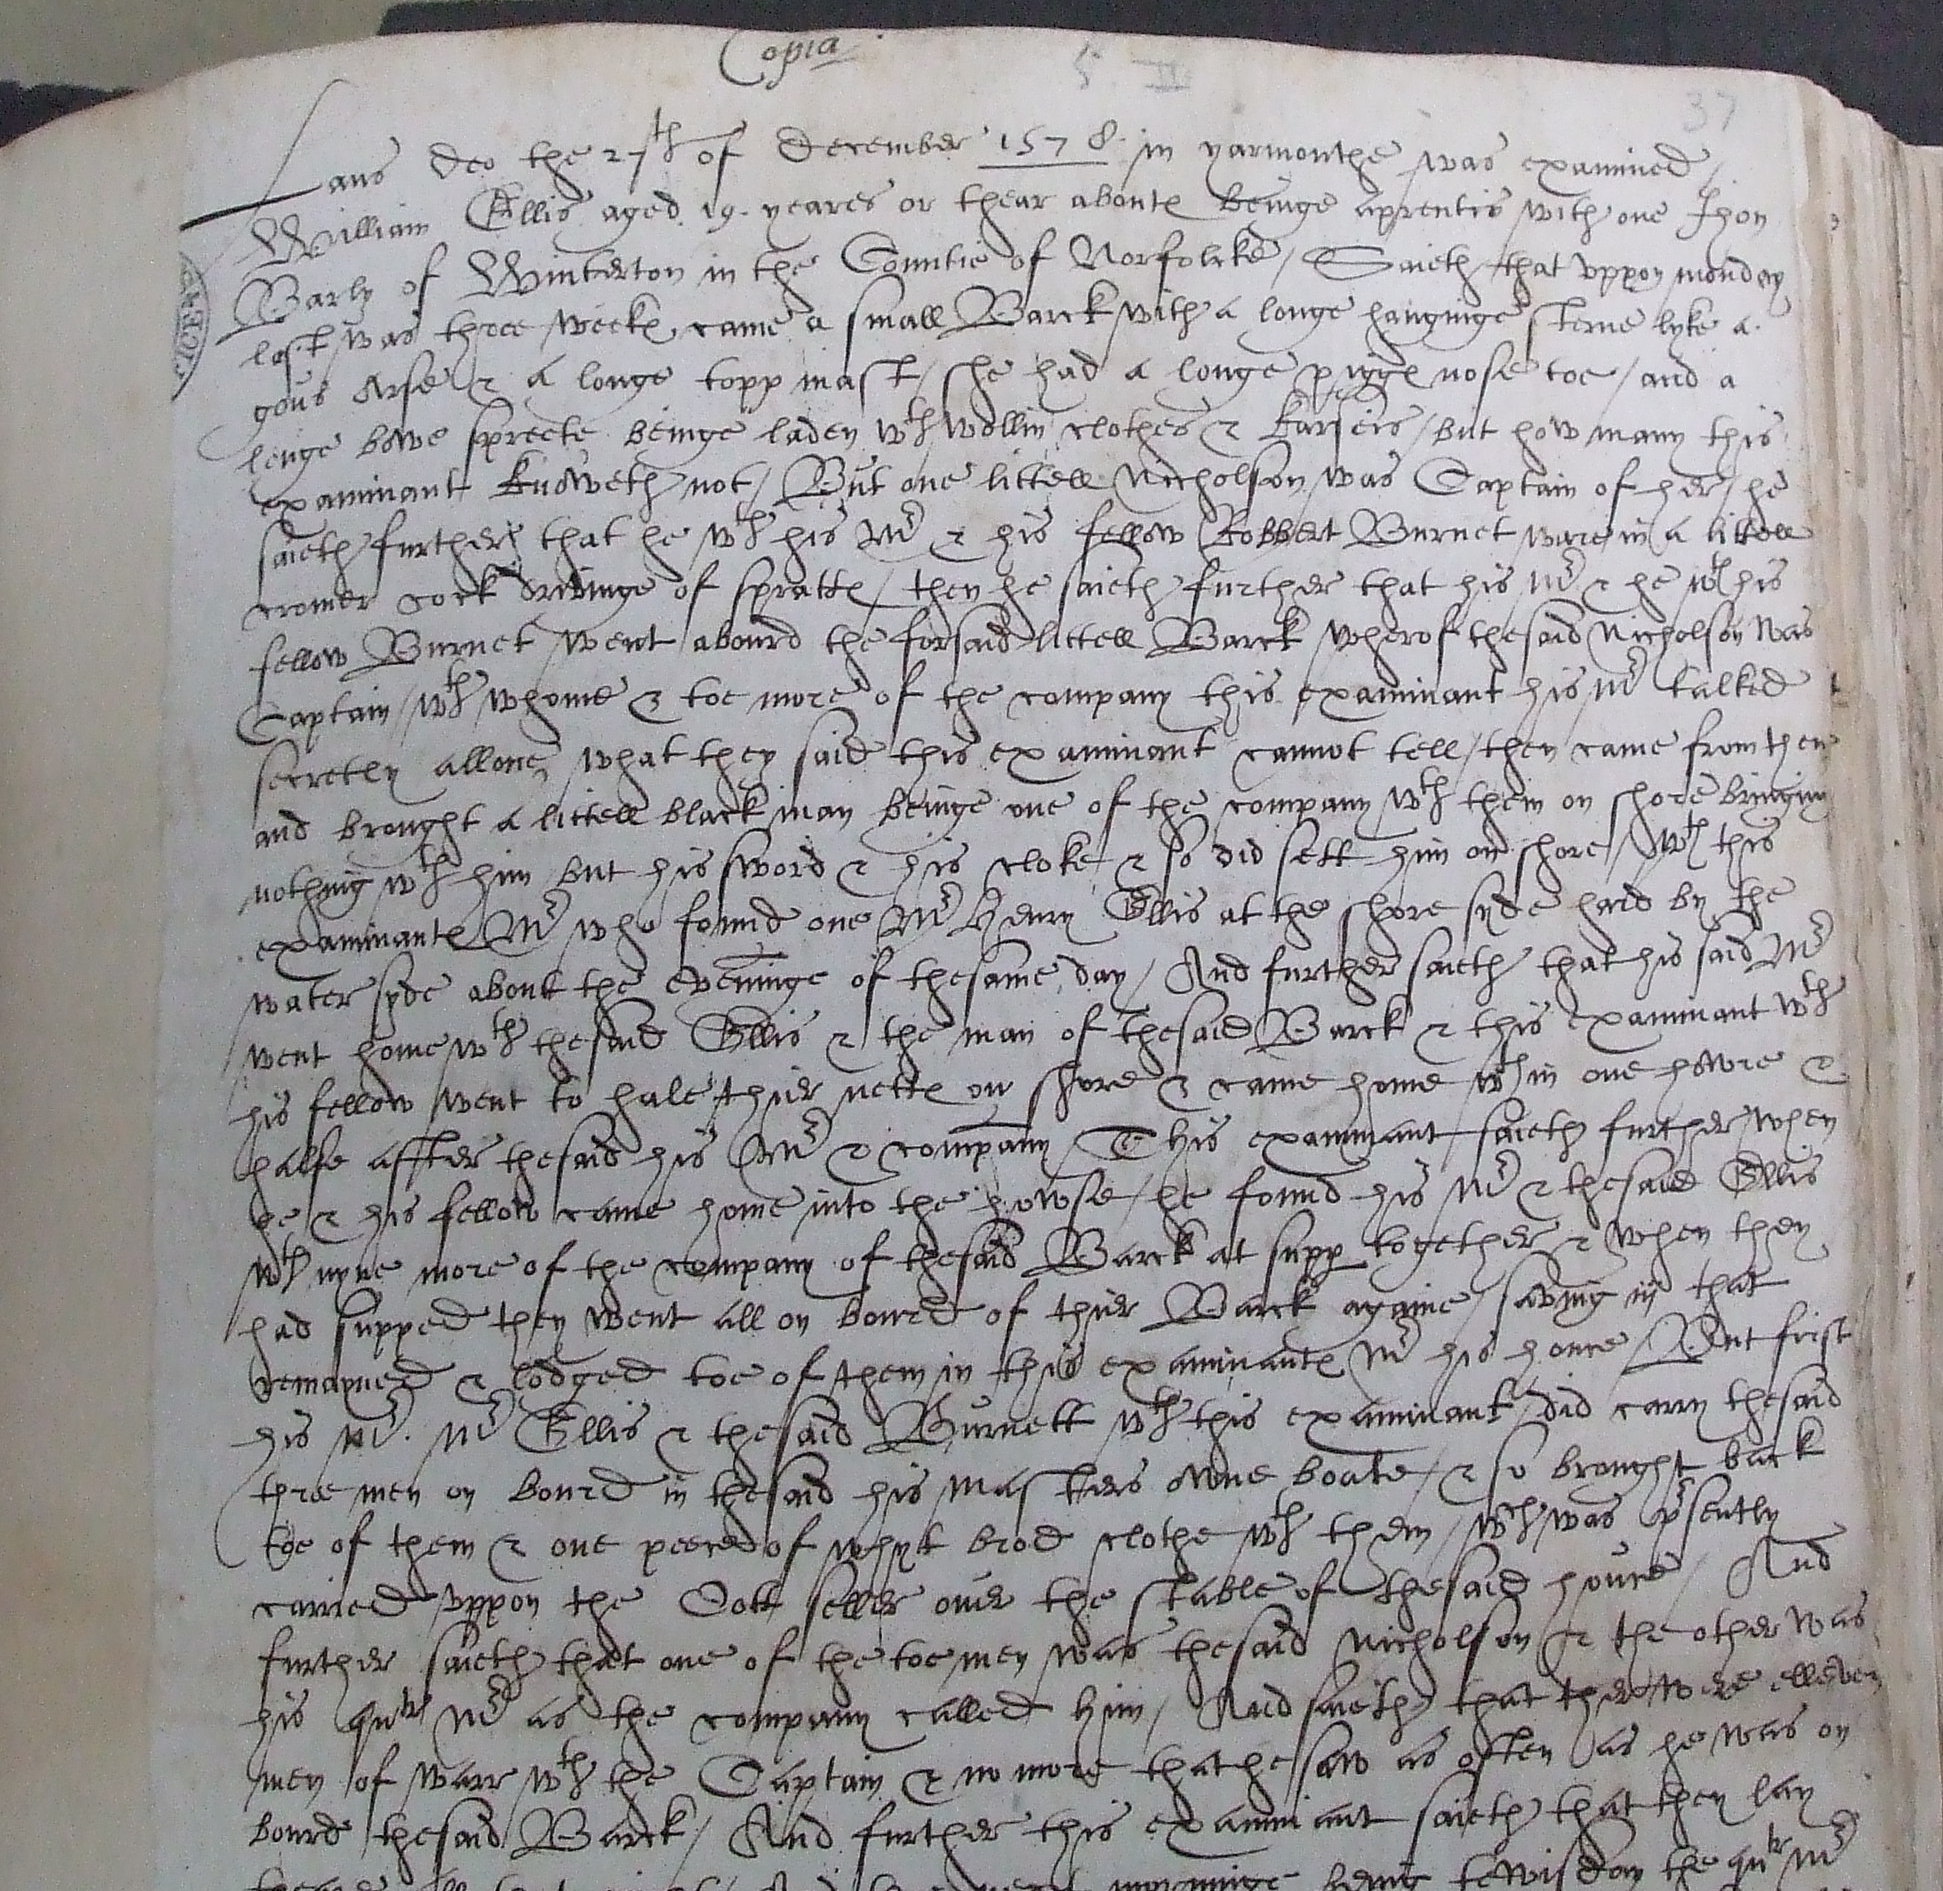 Copia
5 II
37
Laus deo the 27th of December 1578 in yarmouthe was examined /
William Ellis aged 19. yeares or thear aboutes beinge aprentis with one Jhon
Barly of Winterton in the Countie of Norfolcke / Saieth that vppon monday
last was three weekes came a small Barck with a longe hanginge sterne lyke a
gous Arse & a longe topp mast / she had a longe pigges nose toe / and a
longe bowe spreete beinge laden wth wollin clothes & karseis / but how many this
examinant knoweth not / But one littell Nicholson was Captain of her / he
saieth further that he wth his Mr & his fellow Robbert Burnet ware in a littell
cromer cock drivinge of spratts / then he saieth further that his Mr & he wth his
fellow Burnet went abourd the forsaid littell Barck wherof thesaid Nicholson was
Captain / wth whome & toe more of the company this examinant his Mr talked
secretly allone, what they said this examinant cannot tell / then came from them
and brought a littell black man beinge one of the company wth them on shore bringing
nothing wth him but his sword & his cloke & so did sett him on shore / wth this
examinantes Mr who found one Mr Henry Ellis at the shore syde hard by the
water syde about the eveninge of thesame day / And further saieth that his said Mr
went home wth thesaid Ellis & the man of thesaid Barck & this examinant wth
his fellow went to hale thier netts on shore & came home wthin one howre &
halfe affter thesaid his Mr & company / This examinant saieth further when
he & his fellow came home into the howse / he found his Mr & thesaid Ellis
wth nyne more of the company of thesaid Barck at supp together & when they
had supped they went all on bourd of thier Barck againe / saving iij that
remayned & lodged toe of them in this examinantes Mr his house / But frist
his Mr. Mr Ellis & thesaid Burnett wth this examinant did carry thesaid
three men on bourd in thesaid his masters owne boate / & so brought back
toe of them & one peece of whyt brod clothe wth them / wch was psently
carried vppon the Oott seller ouer the stable of thesaid house / And
further saieth that one of the toe men was thesaid Nicholson & the other was
his qutr Mr as the company called him / And saieth that there were elleven
men of warr wth the Captain & no more that he saw as often as he was on
bourd thesaid Barck / And further this examinant saieth that they lay
morninge being tewisday the qutr Mr